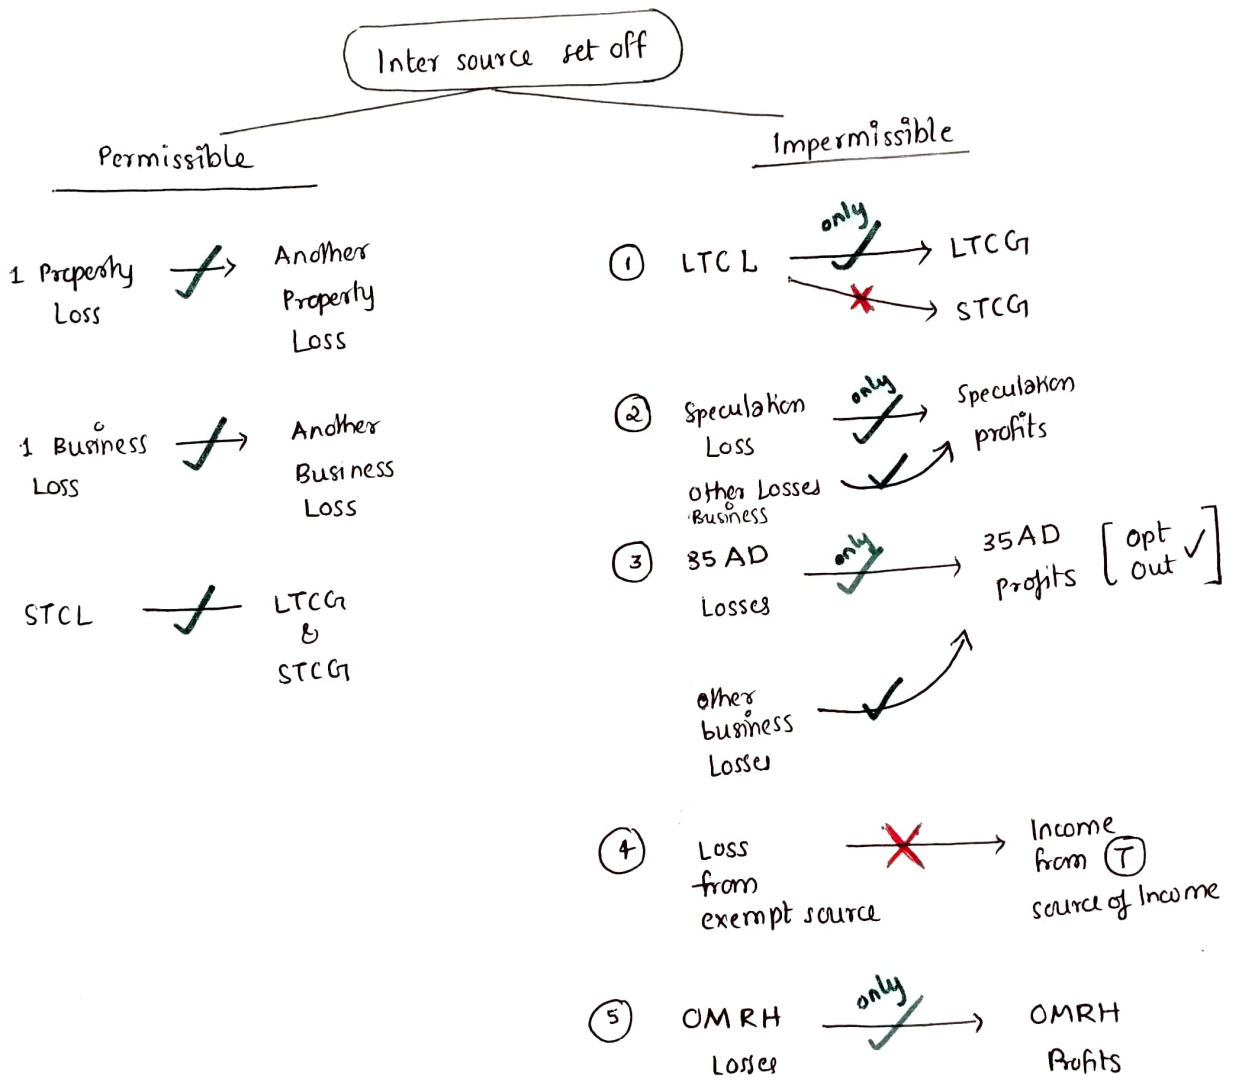 Inter source set off
Permissible
1 Property
Loss
Another
Property
Loss
1 Business
Loss
Another
Business
Loss
STCL
LTCG
&
STCG
Impermissible
1 LTCL
only
LTCG
STCG
2 Speculation
Loss
only
Speculation
profits
other Losses
Business
3 35 AD
Losses
only
35AD
Profits
[Opt
Out ✓]
other
business
Losses
4 Loss
from
exempt source
Income
from T
source of Income
5 OMRH
Losses
only
OMRH
Profits